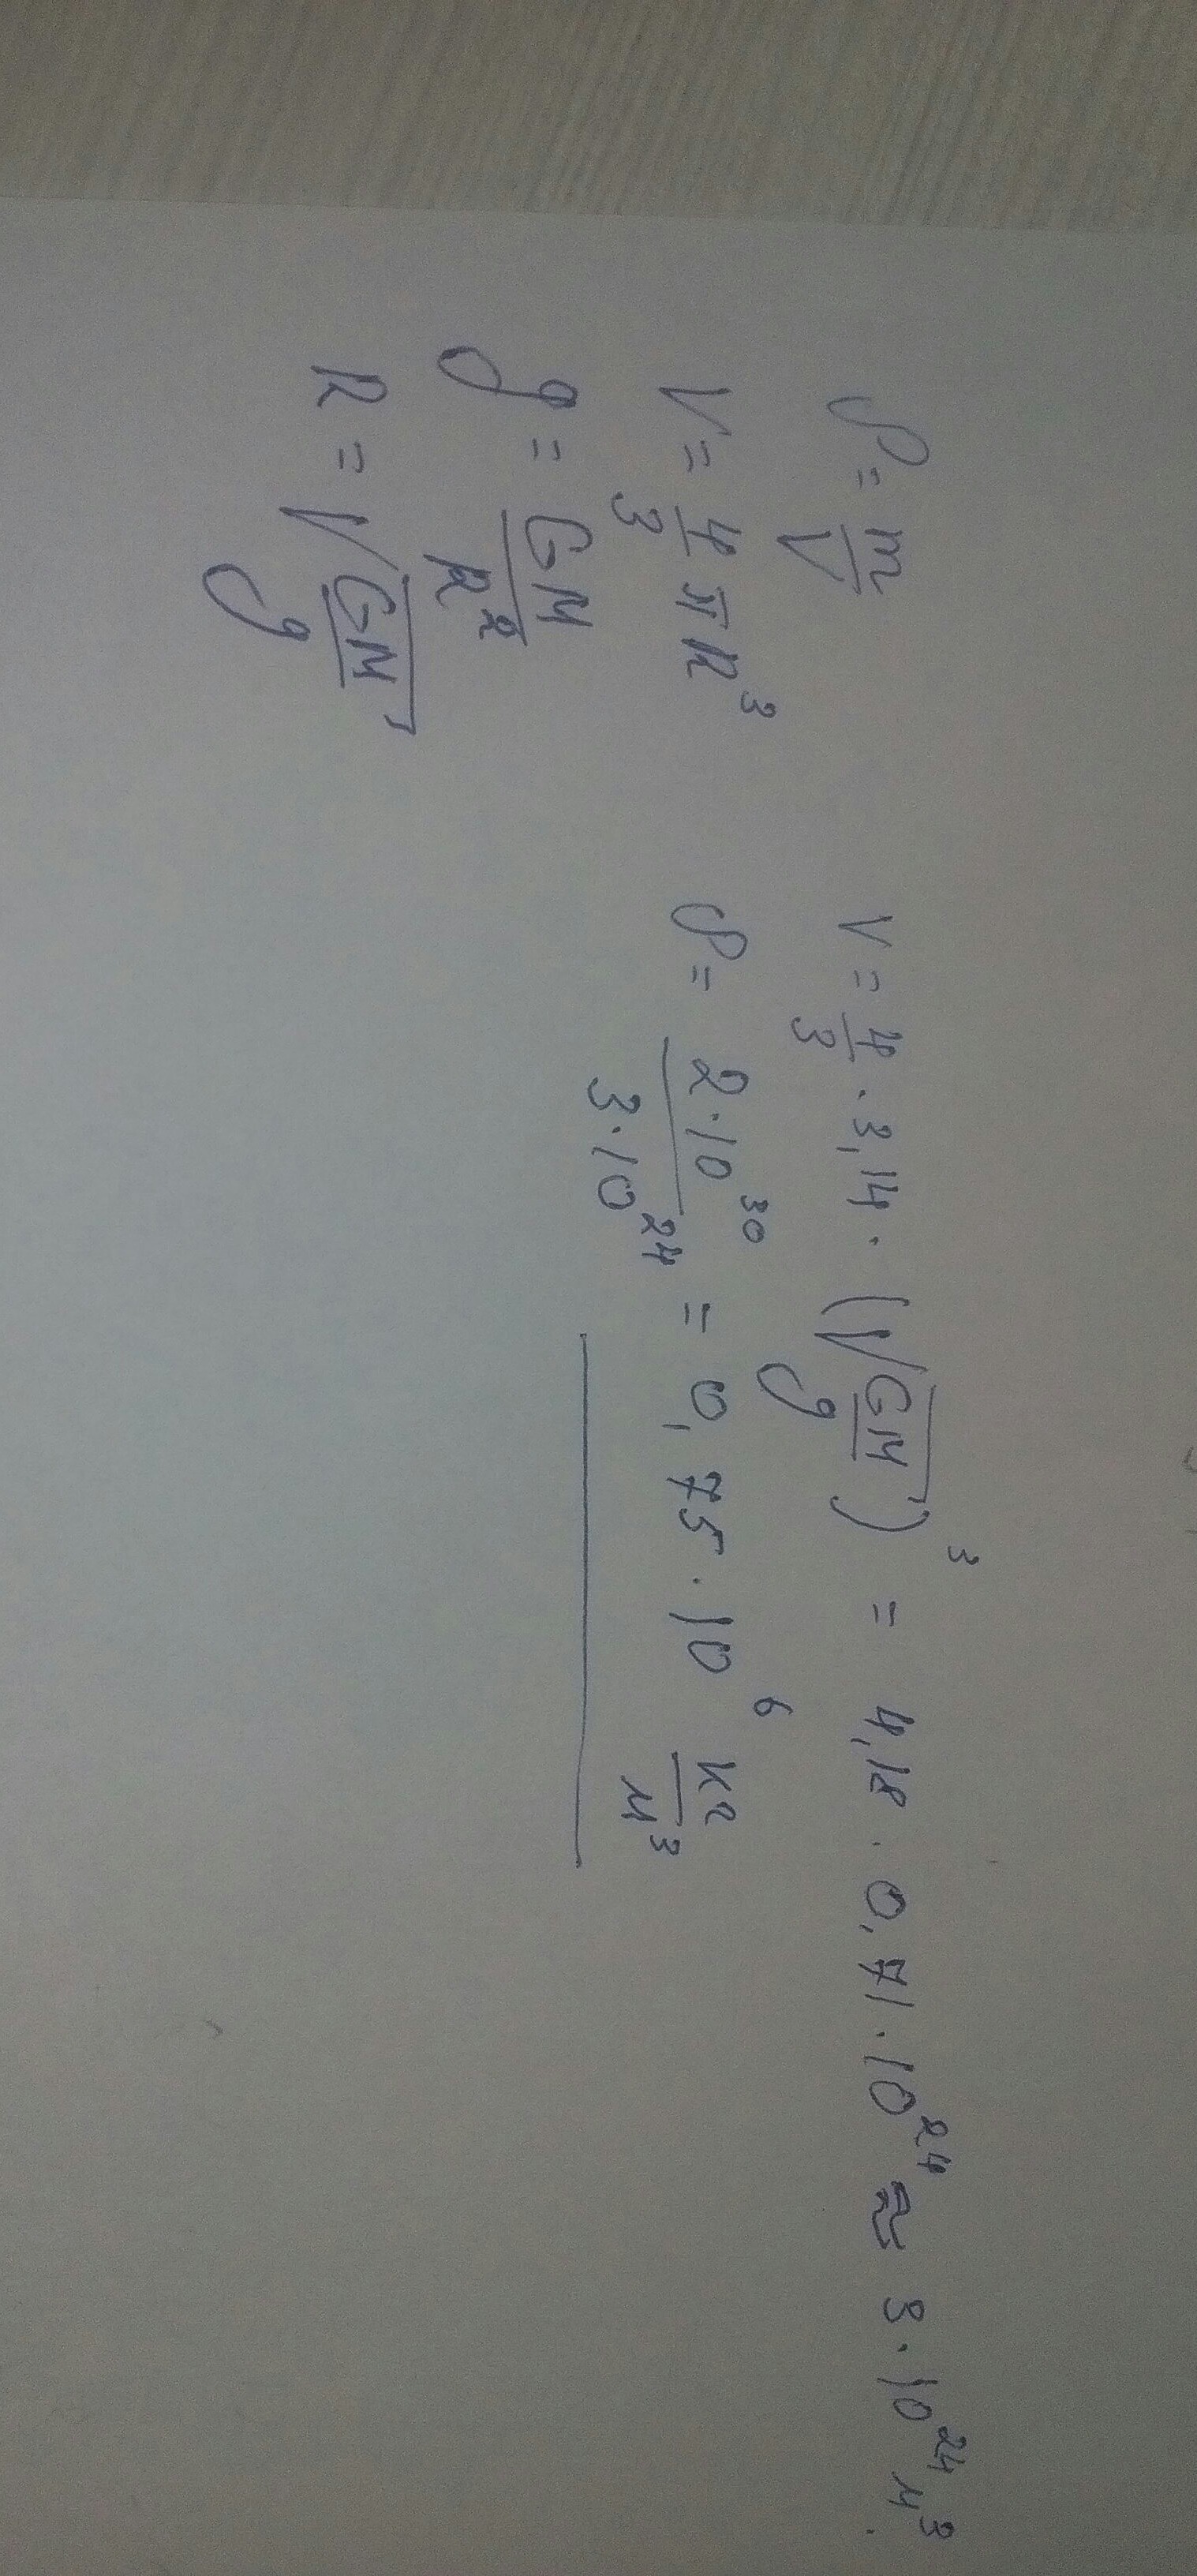 ρ = m/V
V = 4/3 π R³
g = GM/R²
R = √(GM/g)
V = 4/3 · 3,14 · (√(GM/g))³ = 4,18 · 0,71 · 10²⁴ ≈ 3 · 10²⁴ м³.
ρ = 2·10³⁰/3·10²⁴ = 0,75 · 10⁶ кг/м³